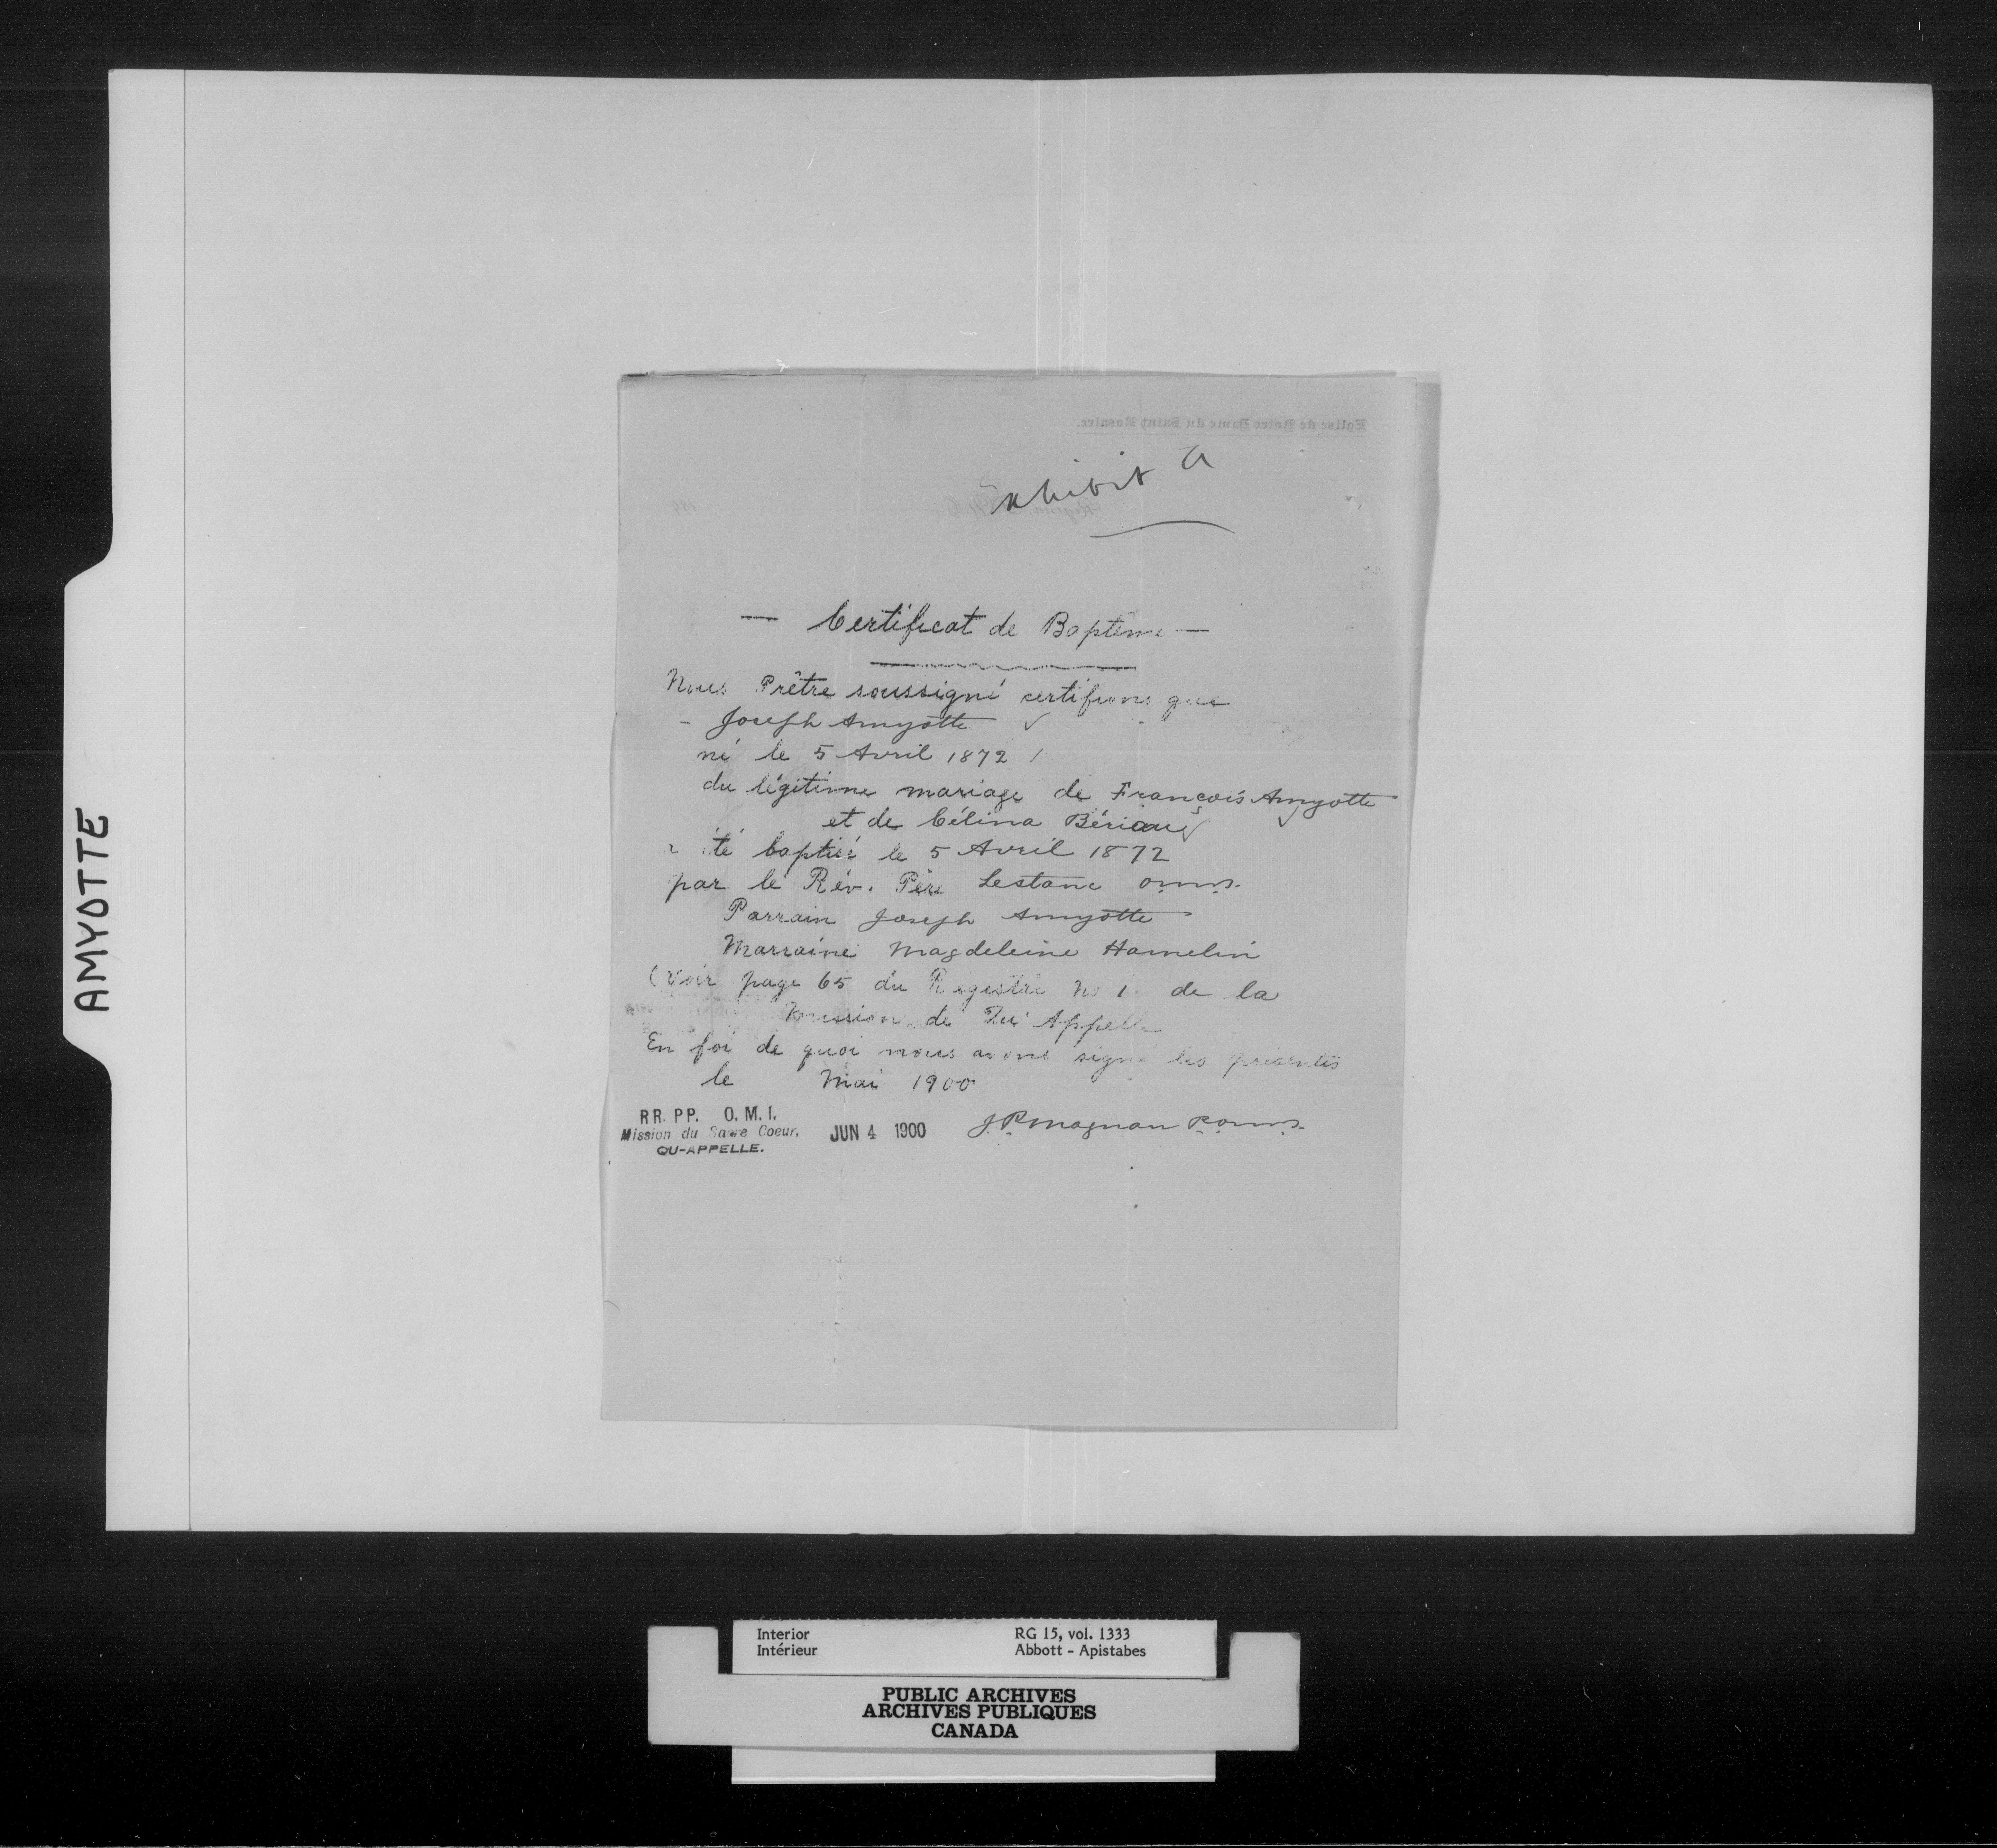 AMYOTTE
Eglise de Notre Dame du Saint Rosaire.
Exhibit A
— Certificat de Baptême —
Nous Prêtre soussigné certifions que
- Joseph Amyotte
né le 5 Avril 1872
du légitime mariage de François Amyotte
et de Célina Bériau
a été baptisé le 5 Avril 1872
par le Rév. Père Lestanc o.m.i.
Parrain Joseph Amyotte
Marraine Magdeleine Hamelin
(Voir page 65 du Registre No 1 de la
Mission de Qu'Appelle
En foi de quoi nous avons signé les présentes
le Mai 1900
RR. PP. O. M. I.
Mission du Sacré Coeur.
QU-APPELLE.
JUN 4 1900
J.P. Magnan P.o.m.i.
Interior
Intérieur
RG 15, vol. 1333
Abbott - Apistabes
PUBLIC ARCHIVES
ARCHIVES PUBLIQUES
CANADA